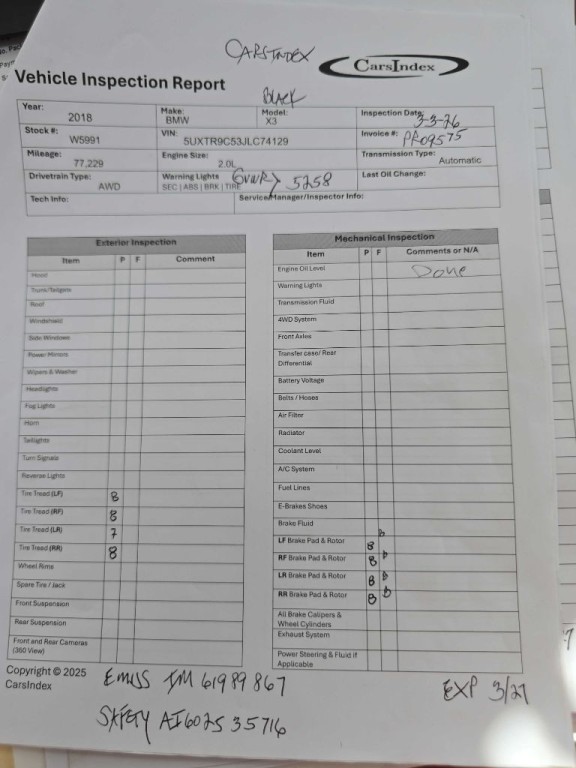 CARSINDEX
CarsIndex
Vehicle Inspection Report
BLACK
Year: 2018 Make: BMW Model: X3 Inspection Date: 3-3-26
Stock #: W5991 VIN: 5UXTR9C53JLC74129 Invoice #: PRO9575
Mileage: 77,229 Engine Size: 2.0L Transmission Type: Automatic
Drivetrain Type: AWD Warning Lights SEC | ABS | BRK | TIRE GVWR 5258 Last Oil Change:
Tech Info: Service Manager/Inspector Info:
Exterior Inspection
Item P F Comment
Hood
Trunk/Tailgate
Roof
Windshield
Side Windows
Power Mirrors
Wipers & Washer
Headlights
Fog Lights
Horn
Taillights
Turn Signals
Reverse Lights
Tire Tread (LF) 8
Tire Tread (RF) 8
Tire Tread (LR) 7
Tire Tread (RR) 8
Wheel Rims
Spare Tire / Jack
Front Suspension
Rear Suspension
Front and Rear Cameras
(360 View)
Mechanical Inspection
Item P F Comments or N/A
Engine Oil Level Done
Warning Lights
Transmission Fluid
4WD System
Front Axles
Transfer case/ Rear
Differential
Battery Voltage
Belts / Hoses
Air Filter
Radiator
Coolant Level
A/C System
Fuel Lines
E-Brakes Shoes
Brake Fluid
LF Brake Pad & Rotor 8
RF Brake Pad & Rotor 8
LR Brake Pad & Rotor 8
RR Brake Pad & Rotor 8
All Brake Calipers &
Wheel Cylinders
Exhaust System
Power Steering & Fluid if
Applicable
Copyright © 2025
CarsIndex
EMISS IM 61989867
EXP 3/27
SAFETY AI6025 35716